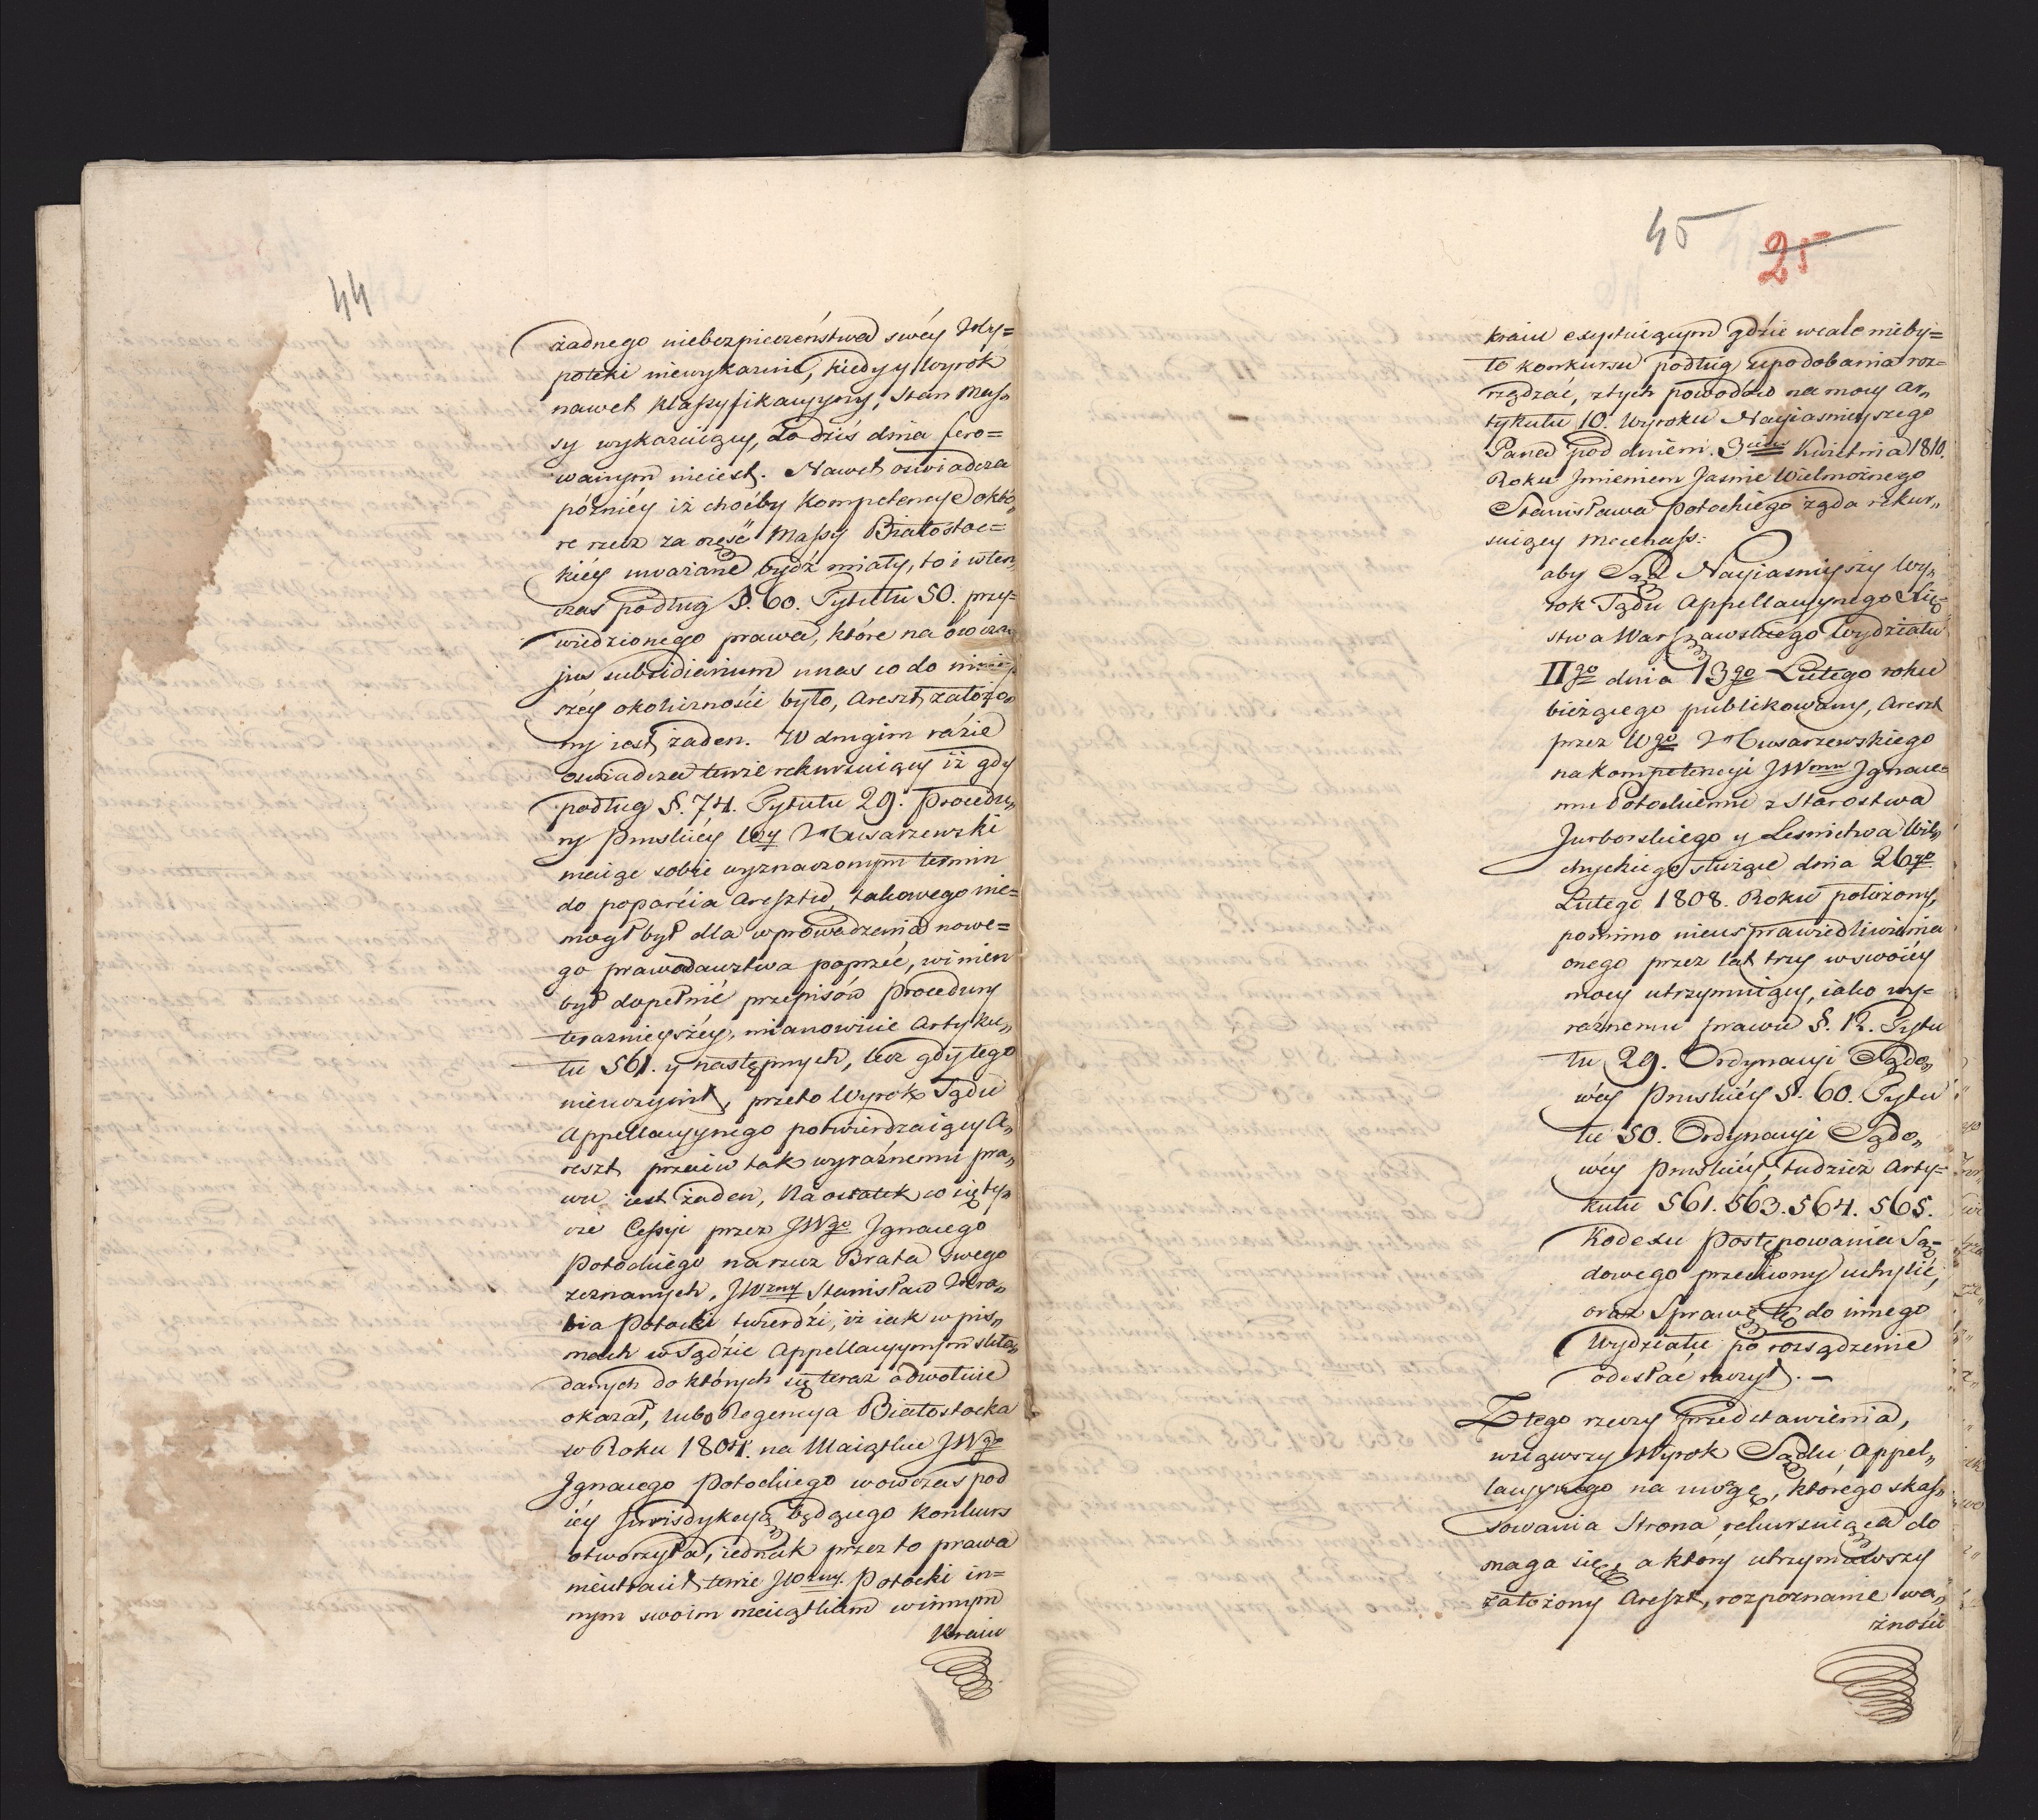 44
żadnego niebezpieczeństwa swéy Hÿ=
poteki niewykazuie, kiedy y Wyrok
nawet Klassyfikacyyny, stan Mas„
sy wykazuiący, do dziś dnia fero=
wanym nieiest. Nawet oświadcza
późniéy iż choćby Kompetencye o któ„
re rzecz za część Massy Białostoc=
kiéy uważane bydź miały, to i wten„
czas podług §. 60. Tytułu 50. przy=
wiedzionego prawa, które na ówczas
jus subsidiarium u nas co do niniey„
széy okoliczności było, Areszt założo„
ny iest żaden. W drugim razie
oświadcza tenże rekursuiący iż gdy
podług §. 74. Tytułu 29. Procedu„
ry Pruskiéy Wny Husarzewski
maiąc sobie wyznaczonym termin
do poparcia Aresztu, takowego nie=
mógł był dla wprowadzenia nowe=
go prawodawztwa poprzeć, winien
był dopełnić przepisów Procedury
teraznieyszéy, mianowicie Artyku„
łu 561. y następnych, lecz gdy tego
nieuczynił, przeto Wyrok Sądu
Appellacyynego potwierdzaiący A„
reszt przeciw tak wyraźnemu pra„
wu iest żaden, Na ostatek co się ty„
cze Cessyi przez JWgo Ignacego
Potockiego na rzecz Brata swego
zeznanych, JWzny Stanisław Hra„
bia Potocki twierdzi, iż iak w pis„
mach w Sądzie Appellacyynym skła„
danych do których się teraz odwołuie
okazał, lubo Regencya Białostocka
w Roku 1804. na Maiątku JWgo
Ignacego Potockiego wowczas pod
iéy Jurisdykcyą będącego Konkurs
otworzyła, iednak przez to prawa
nieutracił tenże JWzny. Potocki in=
nym swoim maiątkiem w innym
Kraiu
45
25
kraiu exystuiącym gdzie wcale nieby=
ło konkursu podług upodobania roz=
rządzać, z tych powodów na mocy Ar„
tykułu 10. Wyroku Nayiaśnieyszego
Pana pod dniem. 3cim Kwietnia 1810.
Roku Imieniem Jaśnie Wielmożnego
Stanisława Potockiego żąda rekur„
suiący Mecenass:
aby Sąd Nayiaśnieyszy Wy„
rok Sądu Appellacyynego Xię=
stwa Warszawskiego Wydziału
IIgo dnia 13go Lutego roku
bieżącego publikowany, Areszt
przez Wgo Husarzewskiego
na kompetencyi JWmu Ignace=
mu Potockiemu z Starostwa
Jurborskiego y Lesnictwa Wil„
służące dnia 26go
Lutego 1808. Roku położony,
pomimo nieusprawiedliwienia
onego przez lat trzy w swoiéy
mocy utrzymuiący, iako wy=
raźnemu prawu §. 12. Tytu
łu 29. Ordynacyi Sądo„
wéy Pruskiéy §. 60. Tytu
łu 50. Ordynacyi Sądo„
wéy Pruskiéy, tudzież Arty=
kułu 561. 563. 564. 565.
Kodexu Postępowania Są=
dowego przeciwny uchylić,
oraz Sprawę tę do innego
Wydziału po rozsądzenie
odesłać raczył. —
Z tego rzeczy przedstawienia,
wziąwszy Wyrok Sądu Appel„
lacyynego na uwagę, którego skas„
sowania Strona rekursuiąca do
maga się, a który utrzymawszy
założony Areszt, rozpoznanie wa„
żności